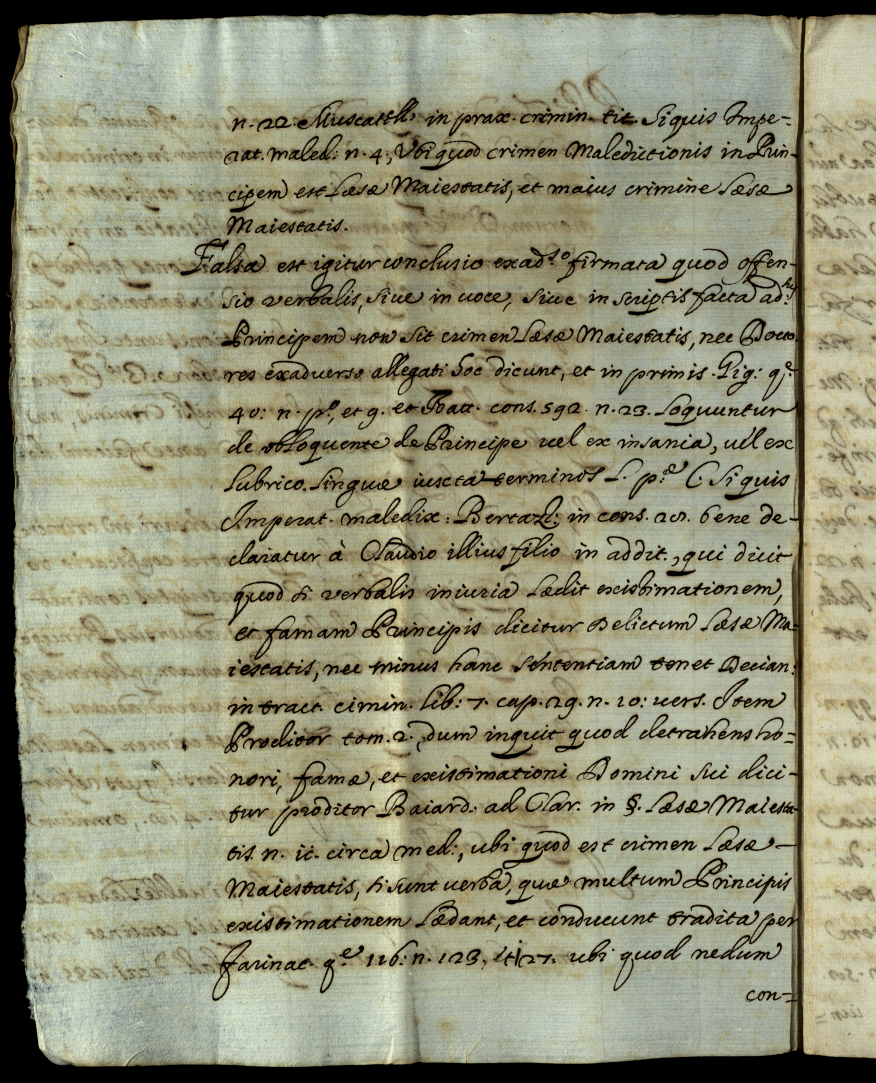 n. 22. Muscatell. in prax. crimin. tit. Si quis Impe-
rat. maled: n. 4., Ubi quod crimen Maledictionis in Prin-
cipem est Læsæ Maiestatis, et maius crimine Læsæ
Maiestatis.
Falsa est igitur conclusio ex ad.so firmata quod offen-
sio verbalis, siue in uoce, siue in scriptis facta ad.s
Principem non sit crimen Læsæ Maiestatis, nec Docto
res exaduerso allegati hoc dicunt, et in primis Gig: q.e
40: n. p.o, et 9. et Roll. cons. 592. n. 23. Loquuntur
de obloquente de Principe uel ex insania, uel ex
lubrico linguæ iuxta terminos L. p.a C. Si quis
Imperat. maledix: Bertaz: in cons. bene de-
claratur à Claudio illius filio in addit., qui dicit
quod si verbalis iniuria lædit existimationem,
et famam Principis dicitur Delictum Læsæ Ma-
iestatis, nec minus hanc sententiam tenet Decian:
in tract. cimin. lib: 7. cap. 29. n. 10: uers. Item
Proditor tom. 2., dum inquit quod detrahens ho=
nori, famæ, et existimationi Domini sui dici-
tur proditor Baiard: ad Clar. in §. Læsæ Maiesta-
tis n. ii. circa med:, ubi quod est crimen Læsæ
Maiestatis, si sunt uerba, quæ multum Principis
existimationem lædant, et conducunt tradita per
farinac. q.e 116: n. 123, et 127. ubi quod nedum
con=